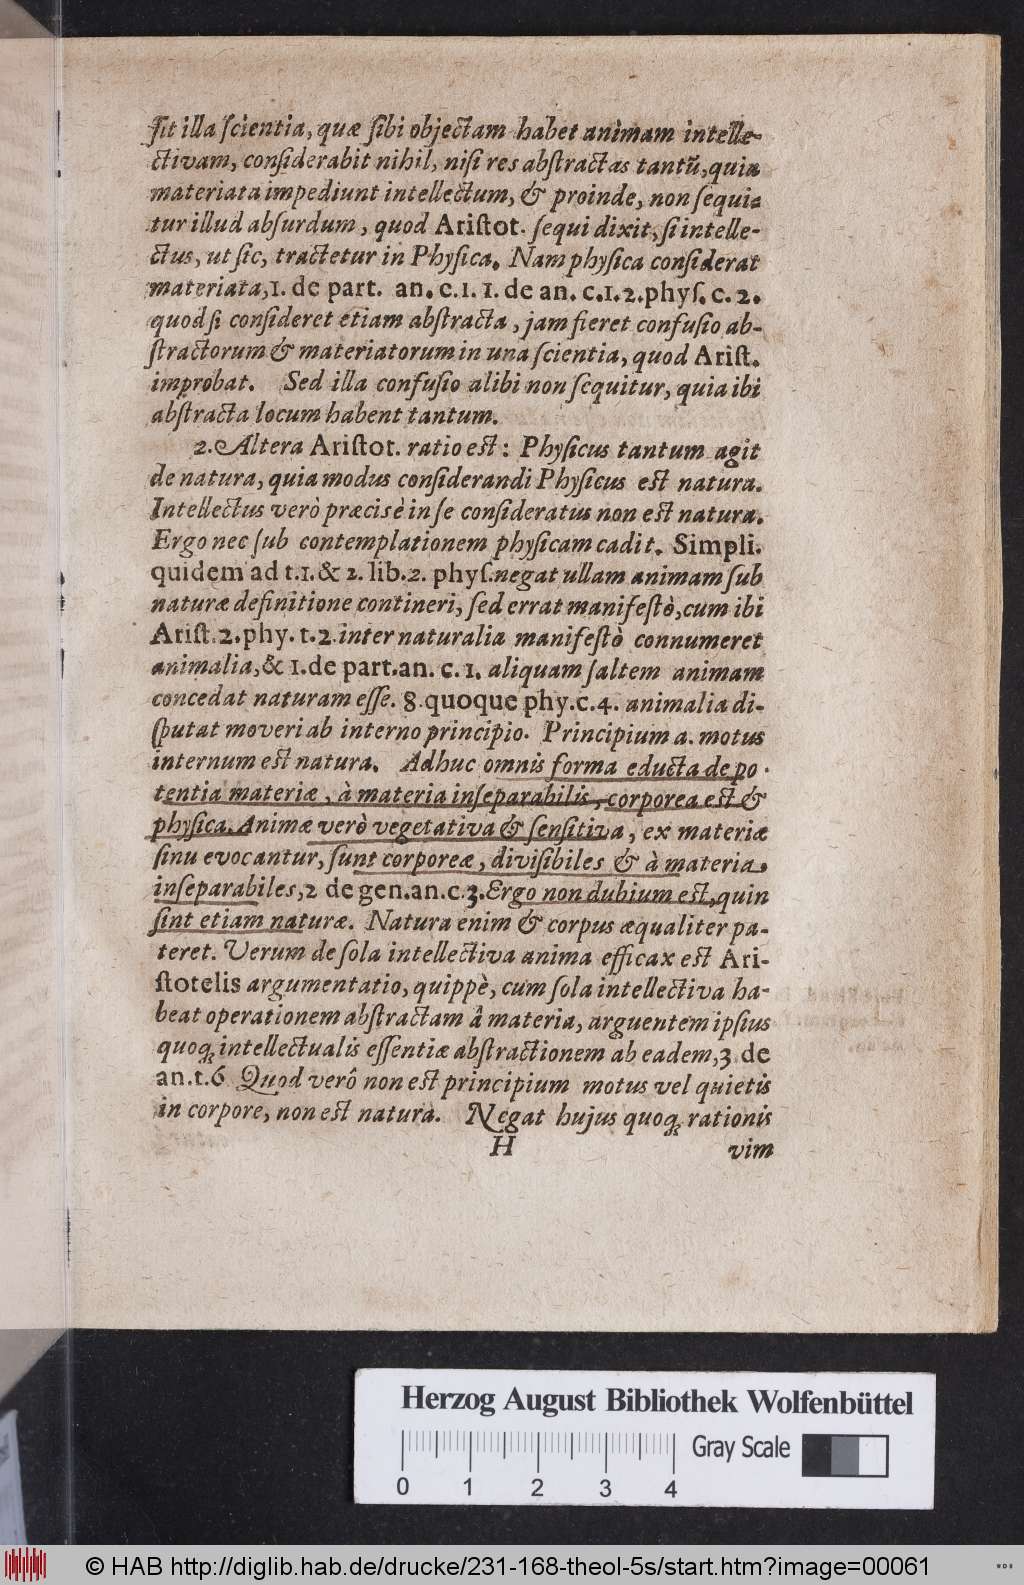 ſit illa ſcientia, quæ ſibi objectam habet animam intelle-
ctivam, conſiderabit nihil, niſi res abſtractas tantũ, quia
materiata impediunt intellectum, & proinde, non ſequi-
tur illud abſurdum, quod Ariſtot. ſequi dixit, ſi intelle-
ctus, ut ſic, tractetur in Phyſica. Nam phyſica conſiderat
materiata, 1. de part. an. c. 1. 1. de an. c. 1. 2. phyſ. c. 2.
quod ſi conſideret etiam abſtracta, jam fieret confuſio ab-
ſtractorum & materiatorum in una ſcientia, quod Ariſt.
improbat. Sed illa confuſio alibi non ſequitur, quia ibi
abſtracta locum habent tantum.
2. Altera Ariſtot. ratio est: Phyſicus tantum agit
de natura, quia modus conſiderandi Phyſicus est natura.
Intellectus verò præcisè in ſe conſideratus non est natura.
Ergo nec ſub contemplationem phyſicam cadit. Simpli.
quidem ad t. 1. & 2. lib. 2. phyſ. negat ullam animam ſub
naturæ definitione contineri, ſed errat manifeſtò, cum ibi
Ariſt. 2. phy. t. 2. inter naturalia manifeſtò connumeret
animalia, & 1. de part. an. c. 1. aliquam ſaltem animam
concedat naturam eſſe. 8. quoque phy. c. 4. animalia di-
ſputat moveri ab interno principio. Principium a. motus
internum est natura. Adhuc omnis forma educta de po-
tentia materiæ, à materia inſeparabilis, corporea est &
phyſica. Animæ verò vegetativa & ſenſitiva, ex materiæ
ſinu evocantur, ſunt corporeæ, diviſibiles & à materia
inſeparabiles, 2 de gen. an. c. 3. Ergo non dubium est, quin
ſint etiam naturæ. Natura enim & corpus æqualiter pa-
teret. Verum de ſola intellectiva anima efficax est Ari-
ſtotelis argumentatio, quippè, cum ſola intellectiva ha-
beat operationem abſtractam â materia, arguentem ipſius
quoq́; intellectualis eſſentiæ abſtractionem ab eadem, 3 de
an. t. 6 Quod verô non est principium motus vel quietis
in corpore, non est natura. Negat hujus quoq́; rationis
H vim
Herzog August Bibliothek Wolfenbüttel
Gray Scale
0 1 2 3 4
© HAB http://diglib.hab.de/drucke/231-168-theol-5s/start.htm?image=00061